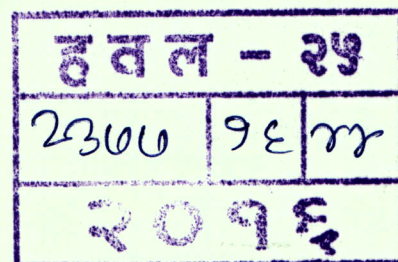 हवल - २५
२३७७ १६ ४४
२०१६